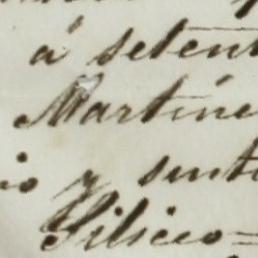 á setent
Martíne
io y sent
Siliceo=